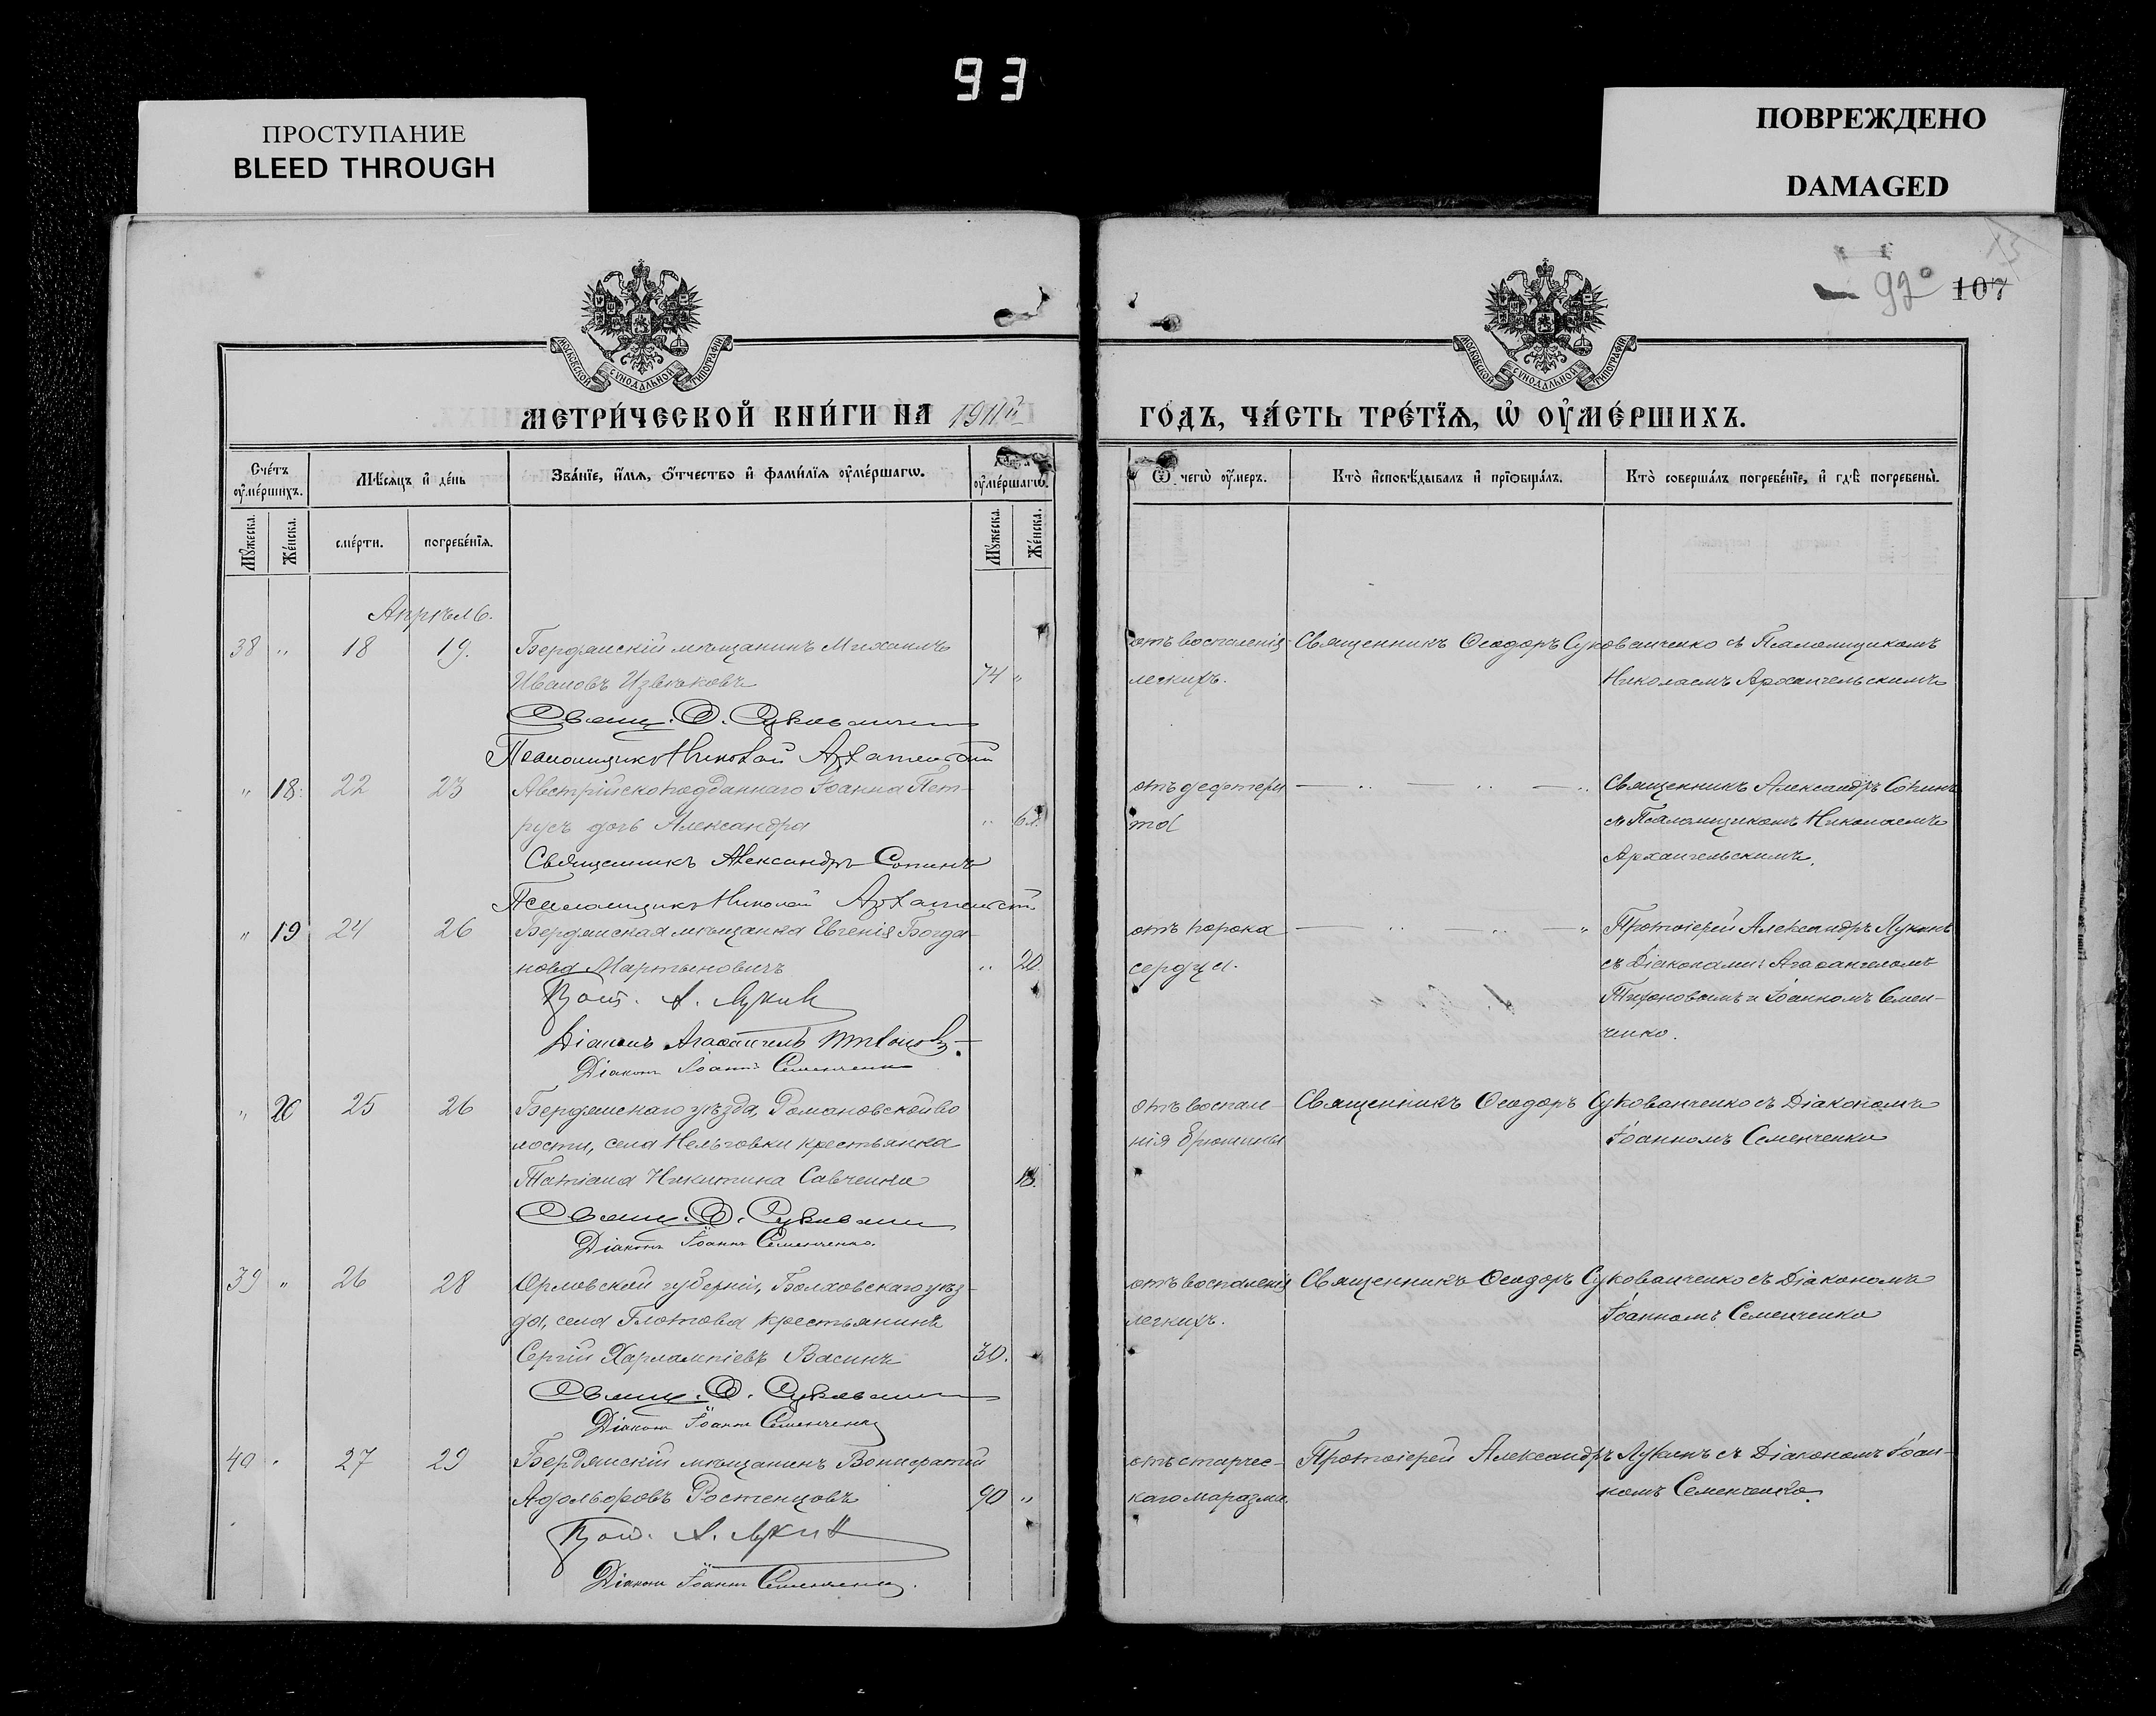 93
ПРОСТУПАНИЕ
BLEED THROUGH
ПОВРЕЖДЕНО
DAMAGED
92
107
МОСКОВСКОЙ СУНОДАЛЬНОЙ ТИПОГРАФІИ
МОСКОВСКОЙ СУНОДАЛЬНОЙ ТИПОГРАФІИ
МЕТРИ́ЧЕСКОЙ КНИ́ГИ НА 1911й
ГО́ДЪ, ЧА́СТЬ ТРЕ́ТЇѦ, Ѡ҆ ОУ҆МЕ́РШИХЪ.
Сче́тъ оу҆ме́ршихъ.
Мѣ́сѧцъ и҆ де́нь
Зва́нїе, и҆́мѧ, ѻ҆́тчество и҆ фами́лїѧ оу҆ме́ршагѡ.
оу҆ме́ршагѡ.
Ѿ чегѡ̀ оу҆́меръ.
Кто̀ и҆сповѣ́дывалъ и҆ прїѻбща́лъ.
Кто̀ соверша́лъ погребе́нїе, и҆ гдѣ̀ погребены̀.
Мꙋ́жеска.
Же́нска.
сме́рти.
погребе́нїѧ.
Мꙋ́жеска.
Же́нска.
Апрѣль.
38 " 18 19. Бердянскій мѣщанинъ Михаилъ
Ивановъ Извѣковъ 74 "
Свящ. Ѳ. Сукованченко
Псаломщикъ Николай Архангельскій
отъ воспаленія Священникъ Ѳеодоръ Сукованченко съ Псаломщикомъ
легкихъ. Николаемъ Архангельскимъ
" 18. 22 23 Австрійскоподданнаго Іоанна Пет-
русъ дочь Александра " 6 л.
Священникъ Александръ Сопинъ
Псаломщикъ Николай Архангельскій
отъ дефтери — " — " — " Священникъ Александръ Сопинъ
та съ Псаломщикомъ Николаемъ
Архангельскимъ.
" 19 24 26 Бердянская мѣщанка Евгенія Богда-
нова Мартыновичъ " 20
Прот. А. Лукинъ
Діаконъ Агаѳангелъ Тихоновъ.
Діаконъ Іоаннъ Семенченко
отъ порока — " — " — " Протоіерей Александръ Лукинъ
сердца. съ Діаконами: Агаѳангеломъ
Тихоновымъ и Іоанномъ Семен-
ченко.
" 20 25 26 Бердянскаго уѣзда, Романовской во
лости, села Нельговки крестьянка
Татіана Никитина Савченко 18.
Свящ. Ѳ. Сукованченко
Діаконъ Іоаннъ Семенченко.
отъ воспале- Священникъ Ѳеодоръ Сукованченко съ Діакономъ
нія брюшины Іоанномъ Семенченко
39 " 26 28 Орловской губерніи, Болховскаго уѣз-
да, села Глотова крестьянинъ
Сергій Харлампіевъ Васинъ 30.
Свящ. Ѳ. Сукованченко
Діаконъ Іоаннъ Семенченко
отъ воспаленія Священникъ Ѳеодоръ Сукованченко съ Діакономъ
легкихъ. Іоанномъ Семенченко
40 " 27 29 Бердянскій мѣщанинъ Вонифатій
Адольфовъ Ростенцовъ 90 "
Прот. А. Лукинъ
Діаконъ Іоаннъ Семенченко.
отъ старчес- Протоіерей Александръ Лукинъ съ Діакономъ Іоан-
каго маразма. номъ Семенченко.